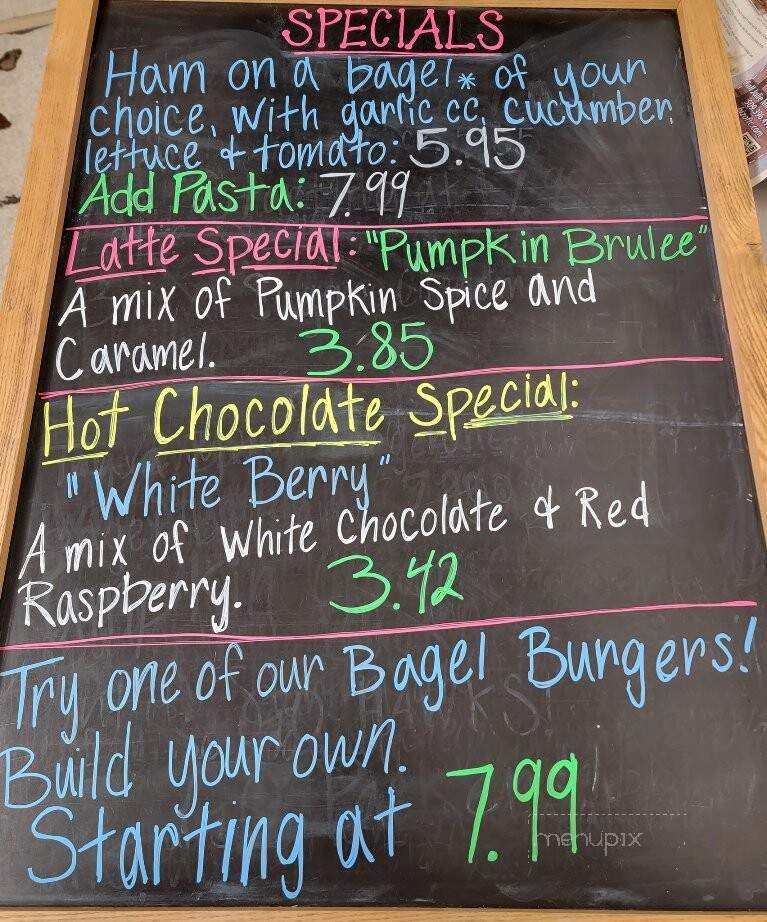 SPECIALS
Ham on a bagel* of your
choice, with garlic cc, cucumber,
lettuce & tomato: 5.95
Add Pasta: 7.99
Latte Special: "Pumpkin Brulee"
A mix of Pumpkin Spice and
Caramel. 3.85
Hot Chocolate Special:
"White Berry"
A mix of White Chocolate & Red
Raspberry. 3.42
Try one of our Bagel Bungers!
Build your own.
Starting at 7.99
menupix